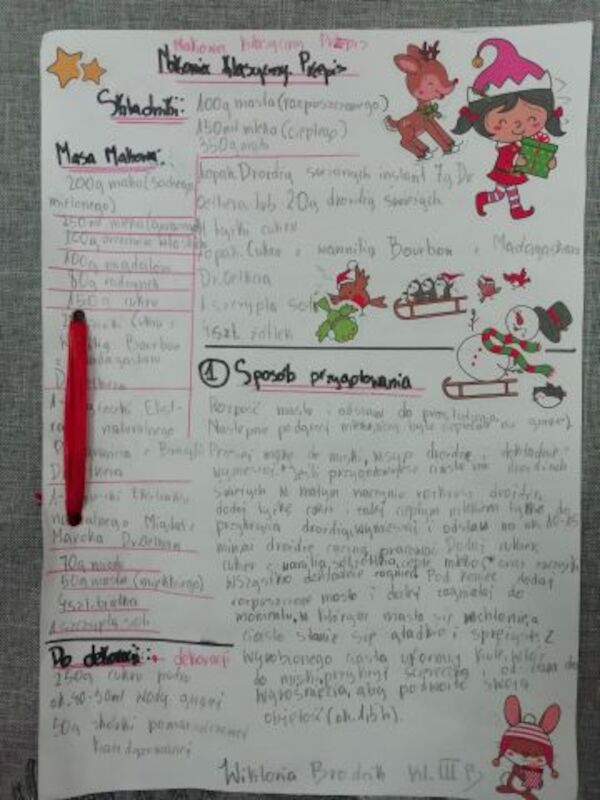 Makowiec klasyczny Przepis
Makowiec klasyczny. Przepis
Składniki:
100g masła (rozpuszczonego)
150ml mleka (ciepłego)
350g mąki
1 opak. Drożdży suszonych instant 7g Dr.
Oetkera lub 20g drożdży świeżych
łyżki cukru
opak. Cukru z wanilią Bourbon z Madagaskaru
Dr. Oetkera
1 szczypta soli
żółtek
Masa Makowa:
200g maku (suchego
mielonego)
250ml mleka
100g orzechów włoskich
100g migdałów
80g rodzynek
150g cukru
Cukru z
Wanilią Bourbon
z Madagaskaru
Dr. Oetkera
naturalnego
z Bourbon
Dr. Oetkera
Ekstraktu
naturalnego Migdał z
Maroka Dr. Oetkera
70g miodu
50g masła (miękkiego)
4szt. białka
1 szczypta soli
Do dekoracji: dekoracji
250g cukru pudru
ok. 40-50ml wody gorącej
50g skórki pomarańczowej
kandyzowanej
1 Sposób przygotowania
Rozpuść masło i odstaw do przestudzenia.
Następnie podgrzej mleko, aby było ciepłe (ale nie gorące).
Przesiej mąkę do miski, wsyp drożdże i dokładnie
wymieszaj. Jeśli przygotowujesz ciasto na drożdżach
świeżych w małym naczyniu rozkrusz drożdże,
dodaj łyżkę cukru i zalej ciepłym mlekiem tylko do
przykrycia drożdży, wymieszaj i odstaw na ok. 10-15
minut drożdże zaczną pracować. Dodaj cukier,
cukier z wanilią, sól, żółtka, ciepłe mleko oraz
Wszystko dokładnie zagnieć. Pod koniec dodaj
rozpuszczone masło i dalej zagniataj do
momentu, w którym masło się wchłonie, a
ciasto stanie się gładkie i sprężyste. Z
wyrobionego ciasta uformuj kulę, włóż
do miski, przykryj ściereczką i odstaw do
wyrośnięcia, aby podwoiło swoją
objętość (ok. 1h).
Wiktoria Brodnik kl. III B